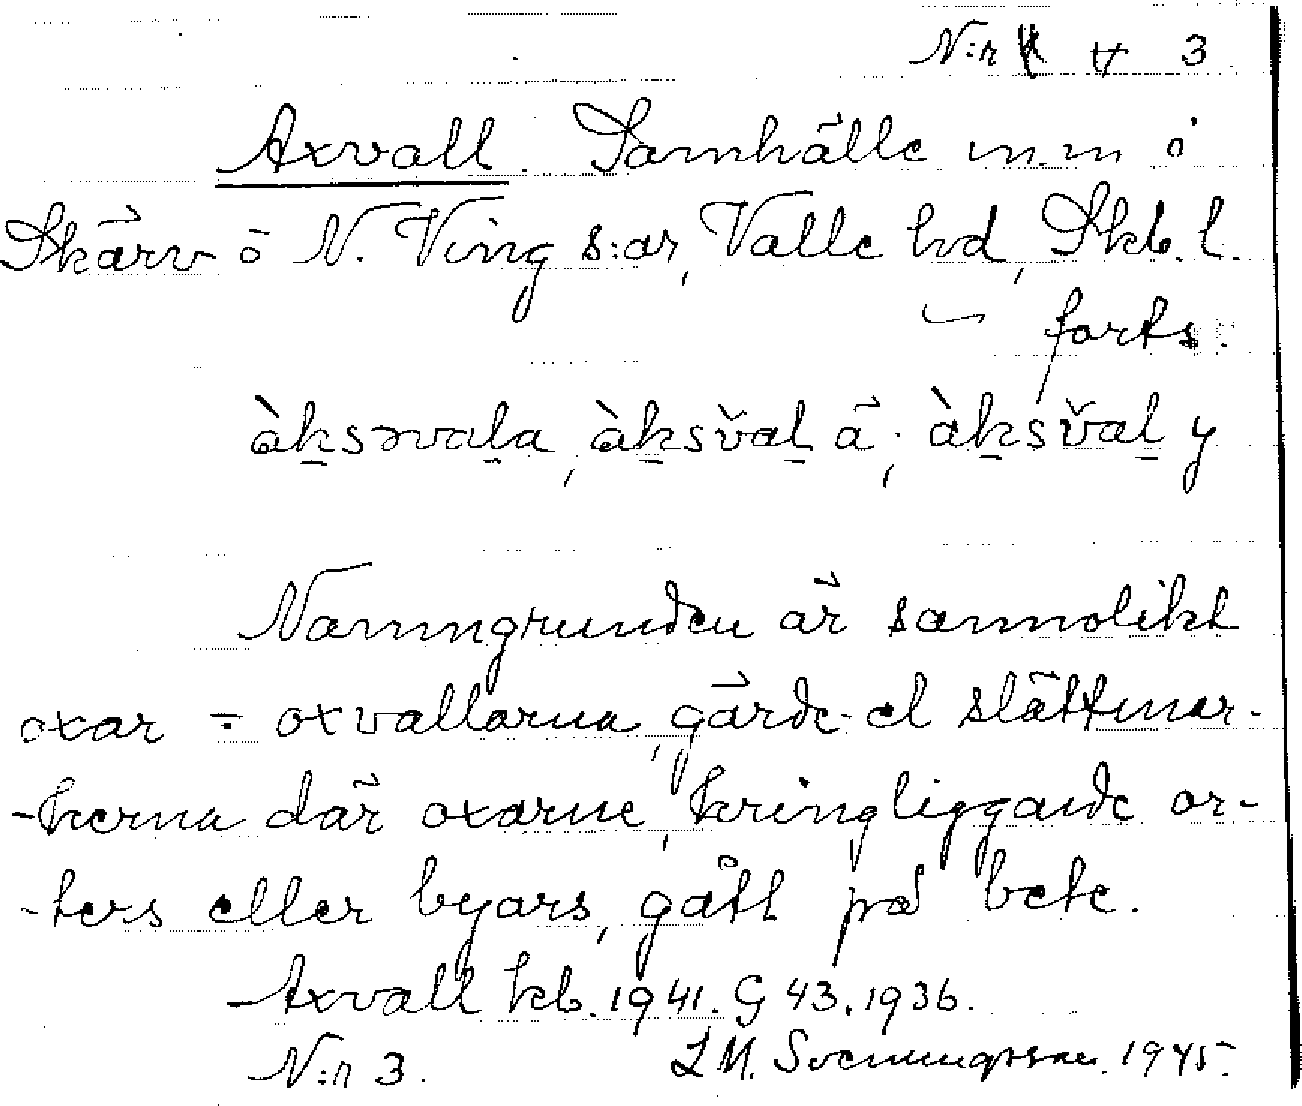 N:r 3
Axvall. Samhälle m.m i
Skärv o N. Ving s:ar, Valle hd, Skb. l.
forts.
àksvala, àksv̌al ä; àksv̌al y
Namngrunden är sannolikt
oxar = oxvallarna, gärde- el slåttmar-
-kerna där oxarne, kringliggande or-
-ters eller byars, gått på bete.
Axvall kb. 1941. G 43. 1936.
N:r 3. L M. Svenungsson. 1945.